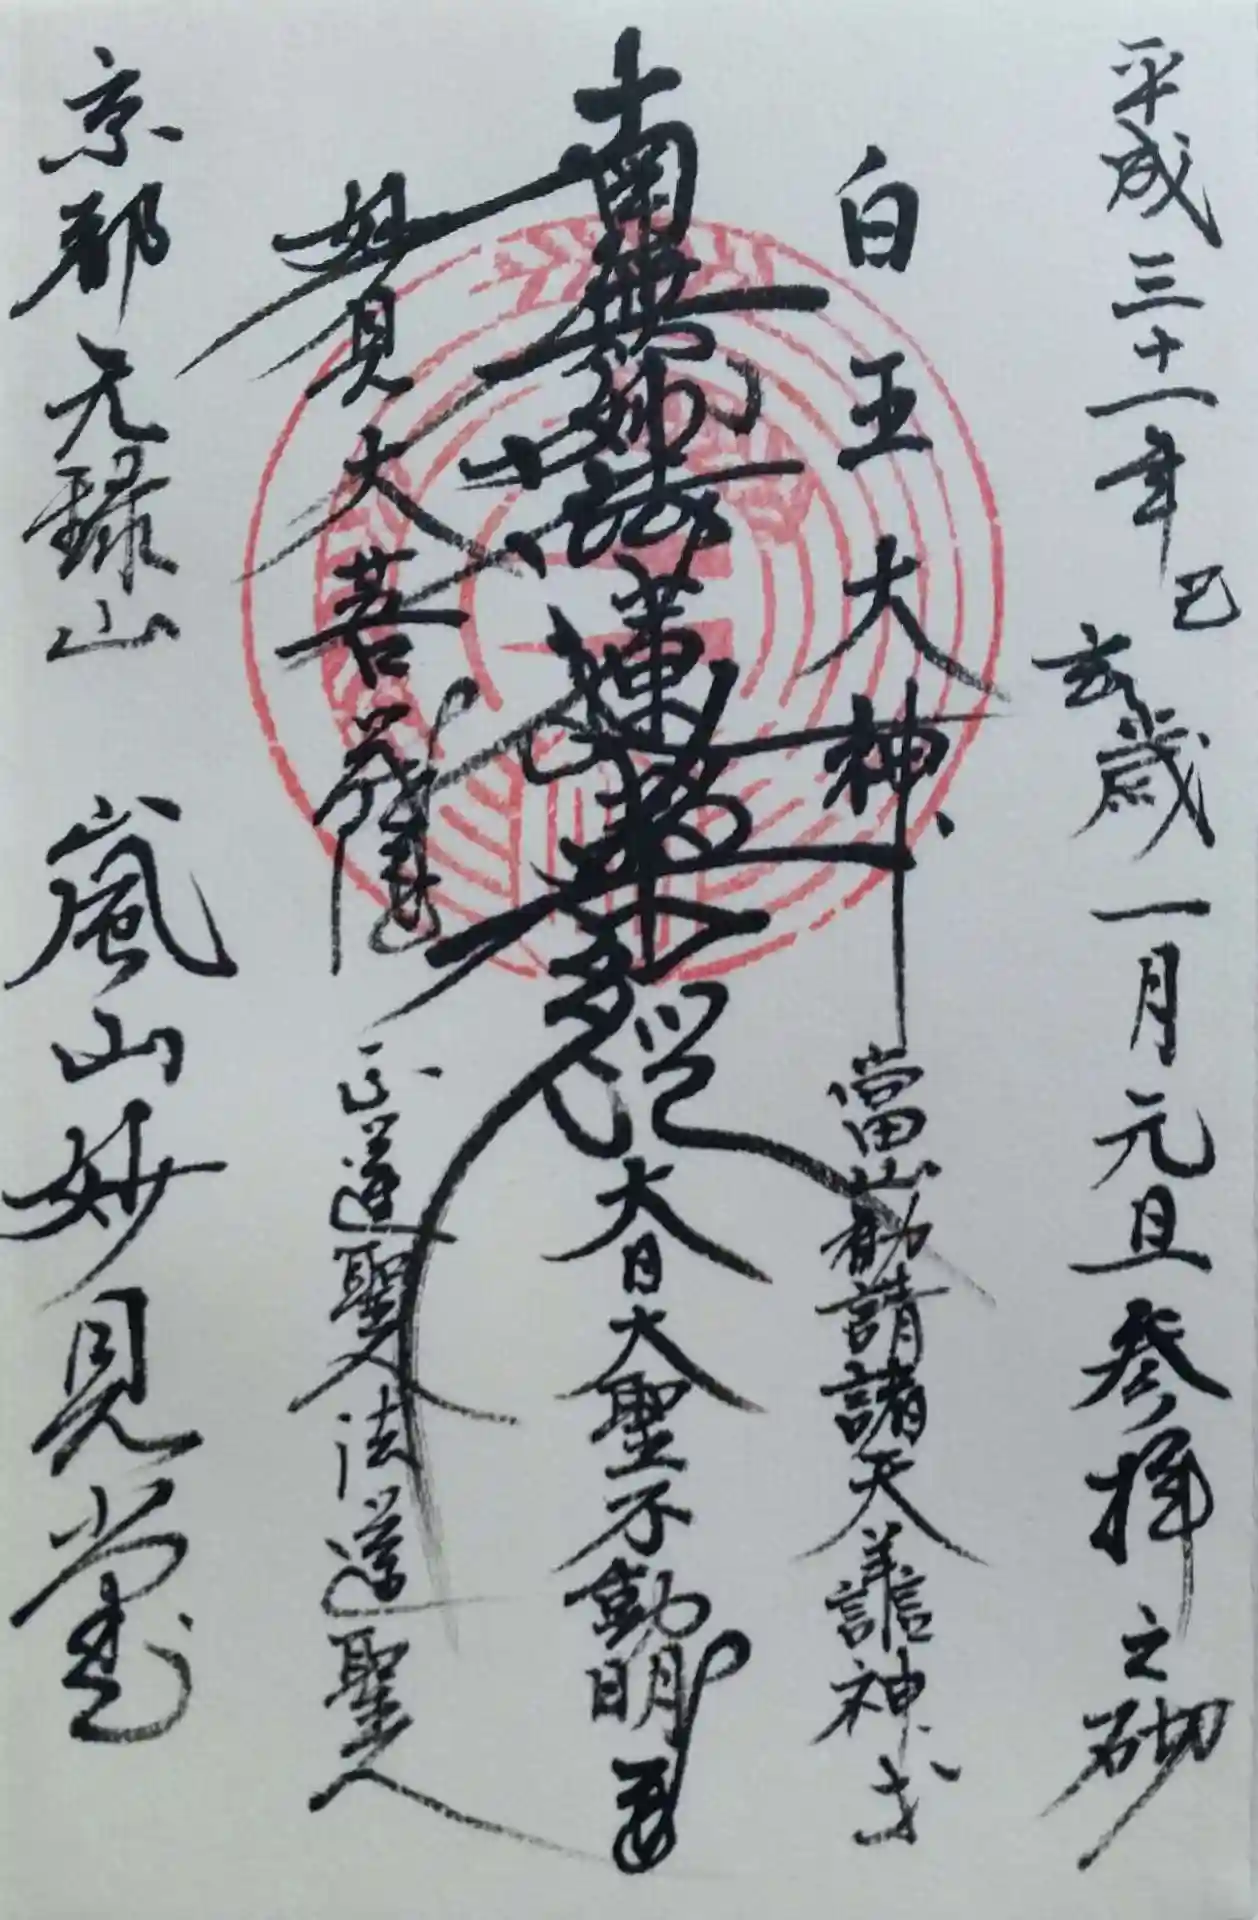 平成三十一年己亥歳一月元旦参拝之砌
白王大神
當山勧請諸天善神
南無妙法蓮華経
大日大聖不動明王
妙見大菩薩
正道聖人法道聖人
京都元録山 嵐山妙見堂